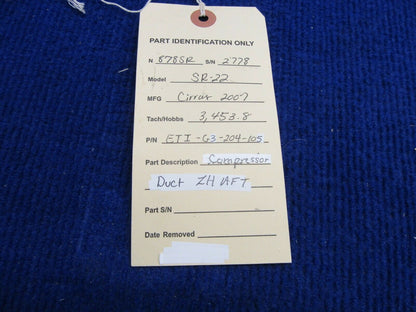 PART IDENTIFICATION ONLY
N 878SR S/N 2778
Model SR-22
MFG Cirrus 2007
Tach/Hobbs 3,453.8
P/N ETI-G3-204-105
Part Description Compressor
Duct LH AFT
Part S/N
Date Removed